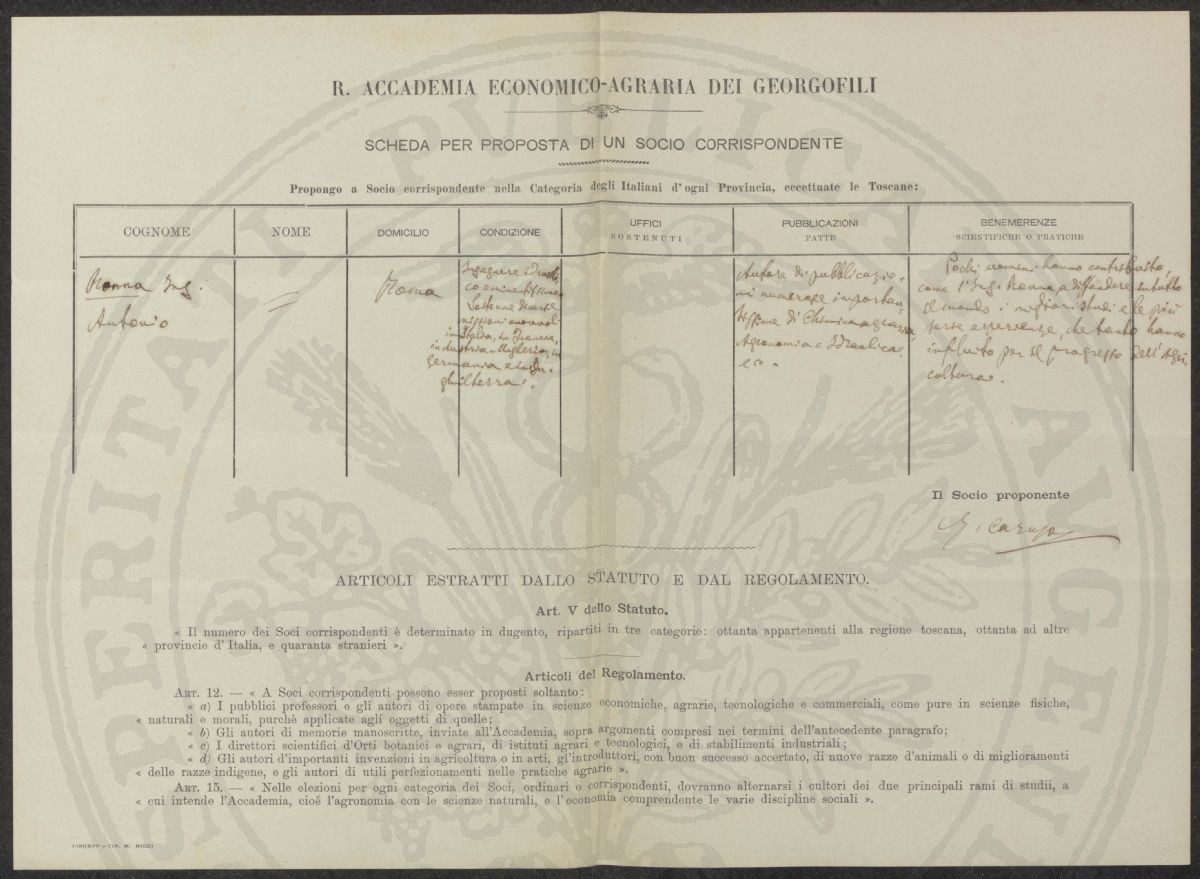 R. ACCADEMIA ECONOMICO-AGRARIA DEI GEORGOFILI
SCHEDA PER PROPOSTA DI UN SOCIO CORRISPONDENTE
Propongo a Socio corrispondente nella Categoria degli Italiani d'ogni Provincia, eccettuate le Toscane:
COGNOME
NOME
DOMICILIO
CONDIZIONE
UFFICI
SOSTENUTI
PUBBLICAZIONI
FATTE
BENEMERENZE
SCIENTIFICHE O PRATICHE
Ing.
Antonio
Roma
Ingegnere idrauli
co eminentissimo
Sostenne diverse
missioni
in Italia, in Francia,
in Austria Ungheria, in
Germania e In
ghilterra.
Autore di pubblicazio-
ni numerose importan
tissime di Chimica agraria,
Agronomia e Idraulica,
ec.
Pochi uomini hanno contribuito,
come l'Ing. a diffondere in tutto
il mondo i migliori studi e le più
serie esperienze, che tanto hanno
influito per il progresso dell'Agri
coltura.
Il Socio proponente
G. Caruso
ARTICOLI ESTRATTI DALLO STATUTO E DAL REGOLAMENTO.
Art. V dello Statuto.
« Il numero dei Soci corrispondenti è determinato in dugento, ripartiti in tre categorie: ottanta appartenenti alla regione toscana, ottanta ad altre
« provincie d'Italia, e quaranta stranieri ».
Articoli del Regolamento.
ART. 12. — « A Soci corrispondenti possono esser proposti soltanto:
« a) I pubblici professori e gli autori di opere stampate in scienze economiche, agrarie, tecnologiche e commerciali, come pure in scienze fisiche,
« naturali e morali, purchè applicate agli oggetti di quelle;
« b) Gli autori di memorie manoscritte, inviate all'Accademia, sopra argomenti compresi nei termini dell'antecedente paragrafo;
« c) I direttori scientifici d'Orti botanici e agrari, di istituti agrari e tecnologici, e di stabilimenti industriali;
« d) Gli autori d'importanti invenzioni in agricoltura o in arti, gl'introduttori, con buon successo accertato, di nuove razze d'animali o di miglioramenti
« delle razze indigene, e gli autori di utili perfezionamenti nelle pratiche agrarie ».
ART. 15. — « Nelle elezioni per ogni categoria dei Soci, ordinari o corrispondenti, dovranno alternarsi i cultori dei due principali rami di studii, a
« cui intende l'Accademia, cioè l'agronomia con le scienze naturali, e l'economia comprendente le varie discipline sociali ».
FIRENZE — TIP. M. RICCI
PROSPERITATI PUBLICAE AVGENDAE